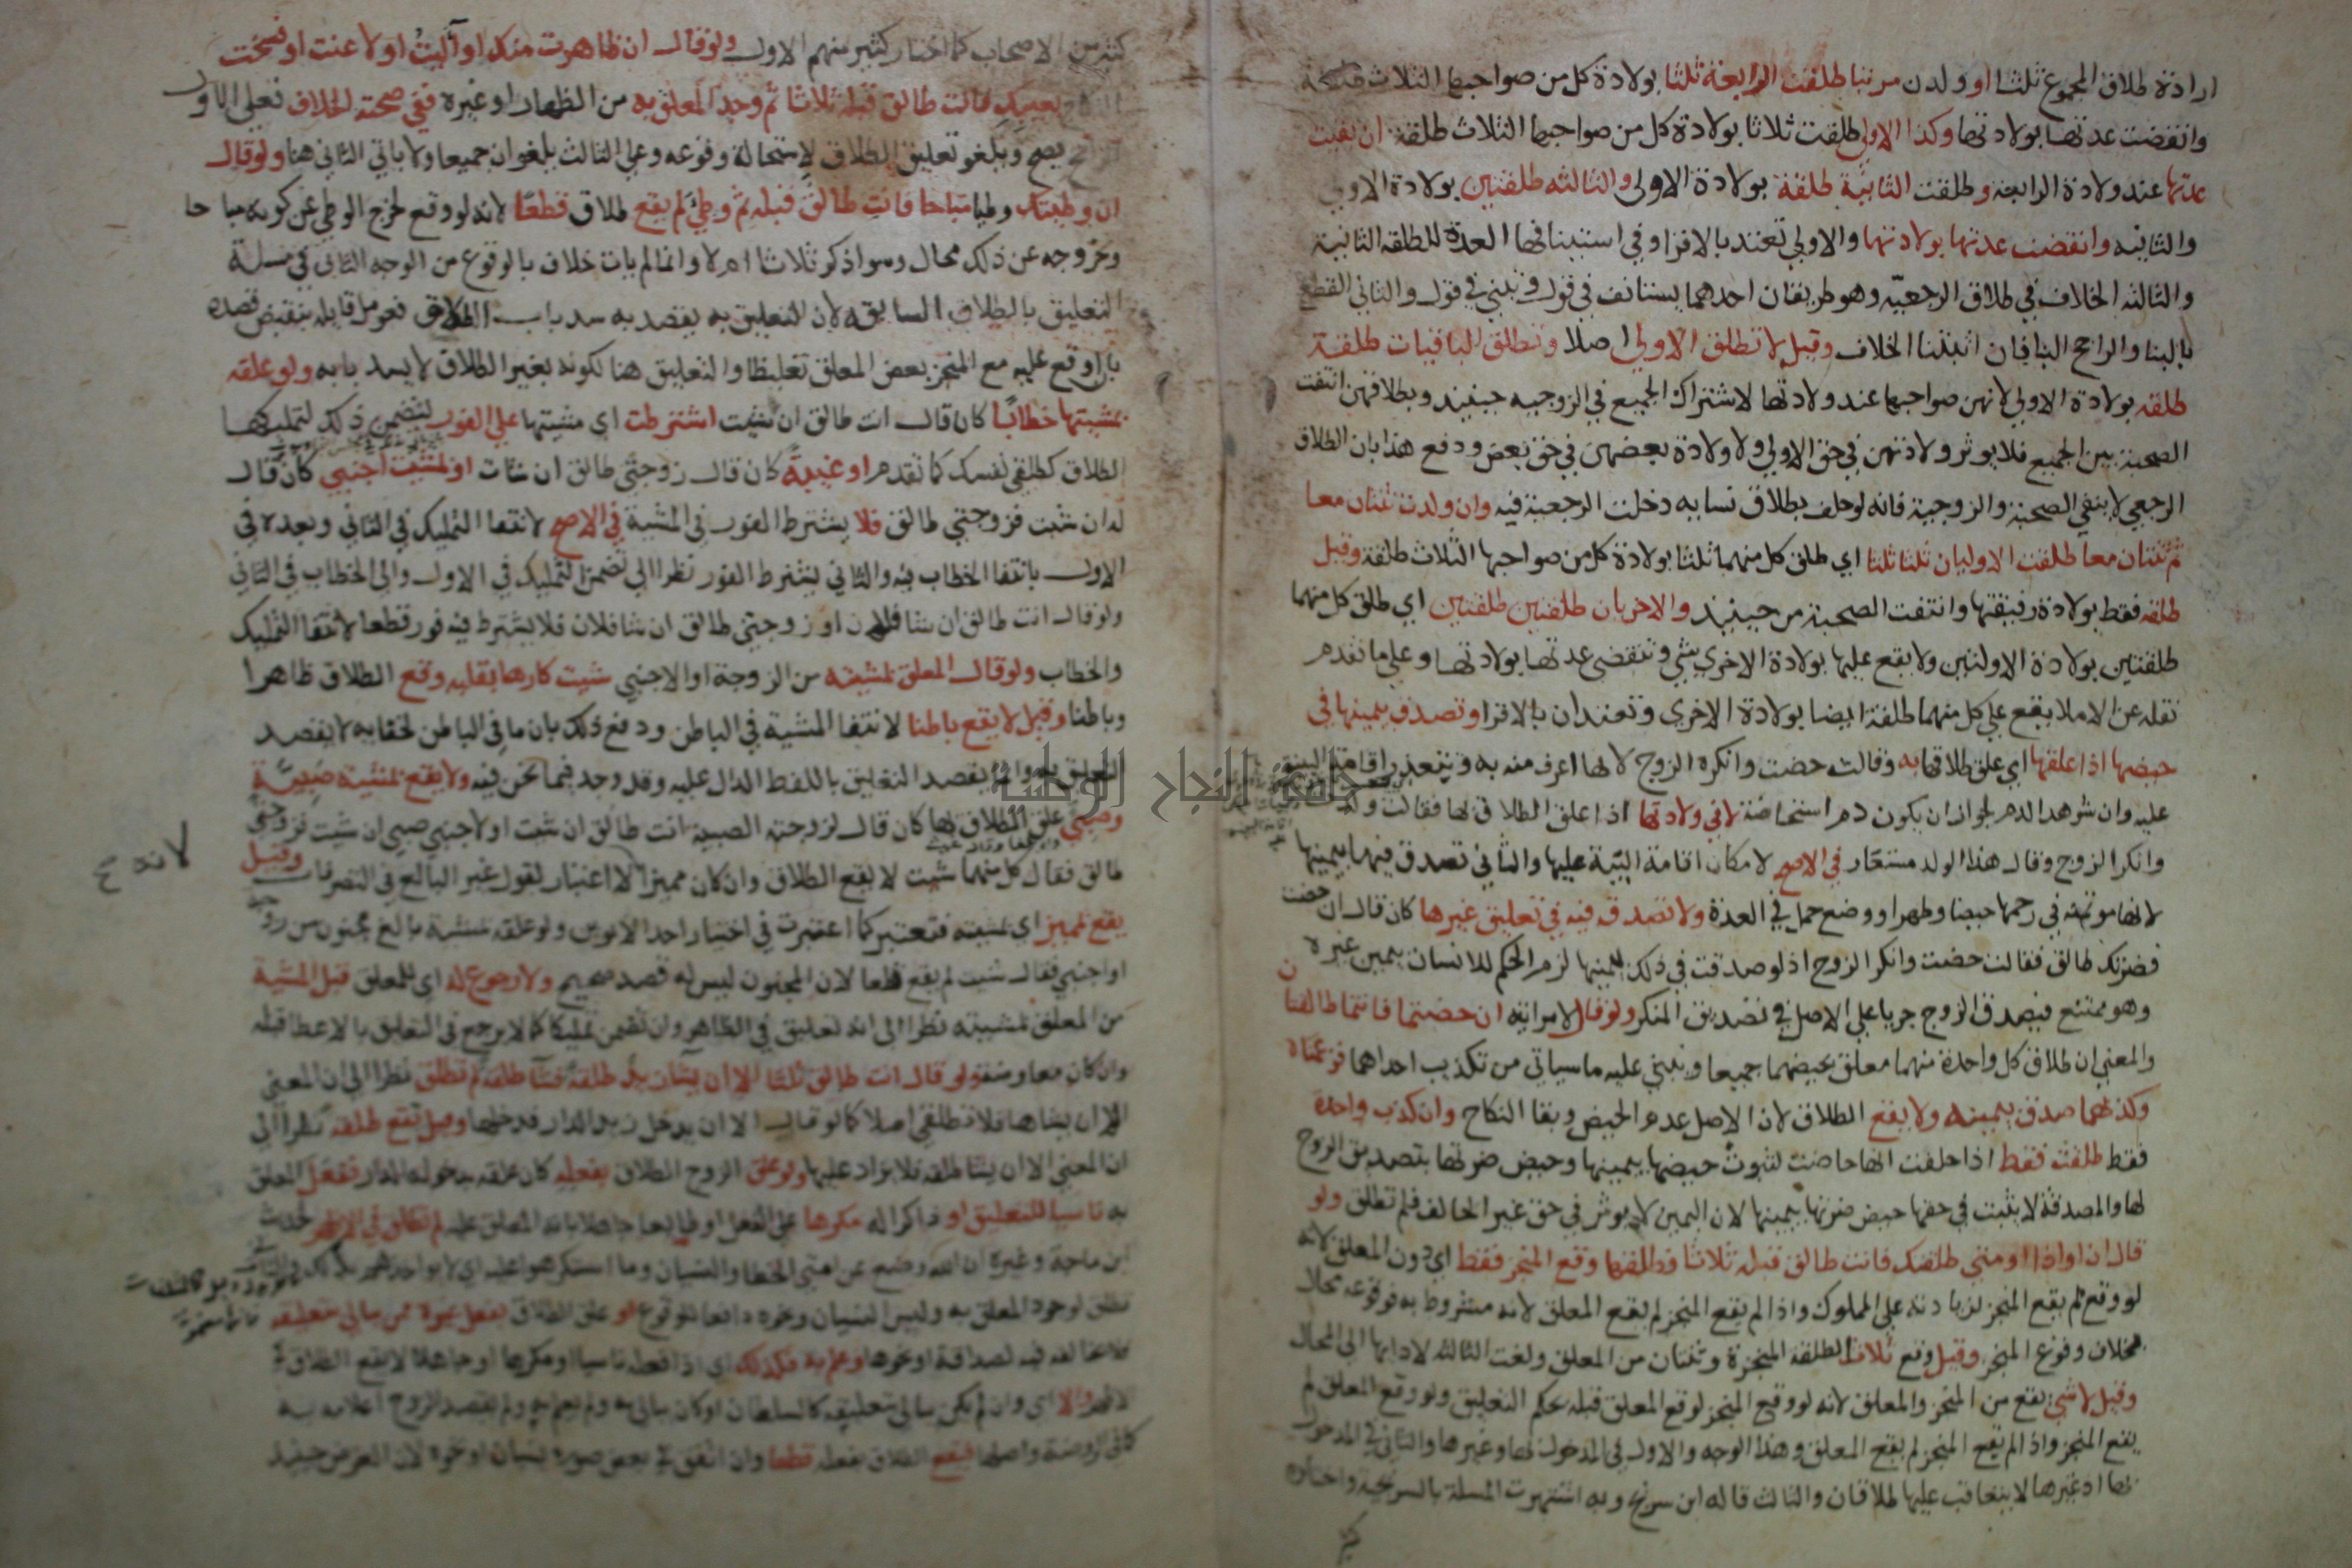 ارادة طلاق المجموع ثلثا او ولدن مرتبا طلقت الرابعة ثلثا بولادة كل من صواحبها الثلاث
وانقضت عدتها بولادتها وكذا الاولى طلقت ثلاثا بولادة كل من صواحبها الثلاث طلقة ان بقيت
عدتها عند ولادة الرابعة وطلقت الثانية طلقة بولادة الاولى والثالثه طلقتين بولادة الاولى
والثانيه وانقضت عدتها بولادتها والاولى تعتد بالاقرا وفي استينافها العدة للطلقه الثانية
والثالثه الخلاف في طلاق الرجعيه وهو طريقان احدهما يستانف في قول وتبني في قول والثاني القطع
بالبنا والراجح البنا فان اثبتنا الخلاف وقيل لا تطلق الاولى اصلا وتطلق الباقيات طلقة
طلقه بولادة الاولى لانهن صواحبها عند ولادتها لاشتراك الجميع في الزوجيه حينئيذ وبطلاقهن انتفت
الصحبة بين الجميع فلا يوثر ولادتهن في حق الاولى ولا ولادة بعضهن في حق بعض ودفع هذا بان الطلاق
الرجعي لا ينفي الصحبة والزوجية فانه لو حلف بطلاق نسايه دخلت الرجعية فيه وان ولدت ثنتان معا
ثم ثنتان معا طلقت الاوليان ثلثا ثلثا اي طلق كل منهما ثلثا بولادة كل من صواحبها الثلاث طلقة وقيل
طلقه فقط بولادة رفيقتها وانتفت الصحبة من حينيذ والاخريان طلقتين طلقتين اي طلق كل منهما
طلقتين بولادة الاولتين ولا يقع عليها بولادة الاخرى شي وتنقضي عدتها بولادتها وعلى ما تقدم
نقله عن الاملا يقع على كل منهما طلقة ايضا بولادة الاخرى وتعتدان بالاقرا وتصدق بيمينها في
حيضها اذا علقها اي علق طلاقها به وقالت حضت وانكره الزوج لانها اعرف منه به وتتعذر اقامة البينة
عليه وان شوهد الدم لجواز ان يكون دم استحاضة لا في ولادتها اذا علق الطلاق لها فقالت ولدت
وانكر الزوج وقال هذا الولد مستعار في الاصح لامكان اقامة البينة عليها والثاني تصدق فيها بيمينها
لانها موتمنة في رحمها حيضا وطهرا ووضع حمل في العدة ولا تصدق فيه في تعليق غيرها كان قال ان حضت
فضرتك طالق فقالت حضت وانكر الزوج اذ لو صدقت في ذلك بيمينها لزم الحكم للانسان بيمين غيره
وهو ممتنع فيصدق الزوج جريا على الاصل في تصديق المنكر ولو قال لامراتيه ان حضتما فانتما طالقتان
والمعنى ان طلاق كل واحدة منهما معلق بحيضهما جميعا ويبني عليه ما سياتي من تكذيب احداهما فزعمتاه
وكذبهما صدق بيمينه ولا يقع الطلاق لان الاصل عدم الحيض وبقا النكاح وان كذب واحدة
فقط طلقت فقط اذا حلفت انها حاضت لثبوت حيضها بيمينها وحيض ضرتها بتصديق الزوج
لها والمصدقة لا يثبت في حقها حيض ضرتها بيمينها لان اليمين لا يوثر في حق غير الحالف فلم تطلق ولو
قال ان او اذا او متى طلقتك فانت طالق قبله ثلاثا فطلقها وقع المنجز فقط اي دون المعلق لانه
لو وقع لم يقع المنجز لزيادته على المملوك واذا لم يقع المنجز لم يقع المعلق لانه مشروط به فوقوعه محال
بخلاف وقوع المنجز وقيل وقع ثلاث الطلقه المنجزة وثنتان من المعلق ولغت الثالثه لادايها الى المحال
وقيل لا شي يقع من المنجز والمعلق لانه لو وقع المنجز لوقع المعلق قبله بحكم التعليق ولو وقع المعلق لم
يقع المنجز واذا لم يقع المنجز لم يقع المعلق وهذا الوجه والاول في المدخول بها وغيرها والثاني في المدخول
بها اذ غيرها لا يتعاقب عليها طلاقان والثالث قاله ابن سريج وبه اشتهرت المسلة بالسريجية واختاره
كثير من الاصحاب كما اختار كثير منهم الاول ولو قال ان ظاهرت منك او آليت او لاعنت او فسخت
بعيبك فانت طالق قبله ثلاثا ثم وجد المعلق به من الظهار او غيره ففي صحته الخلاف فعلى الاول
يصح ويلغو تعليق الطلاق لاستحالة وقوعه وعلى الثالث يلغوان جميعا ولا ياتي الثاني هنا ولو قال
ان وطيتك وطيا مباحا فانت طالق قبله ثم وطي لم يقع طلاق قطعا لانه لو وقع لخرج الوطي عن كونه مباحا
وخروجه عن ذلك محال وسوا ذكر ثلاثا ام لا وانما لم يات خلاف بالوقوع من الوجه الثاني في مسلة
التعليق بالطلاق السابقه لان التعليق به يقصد به سد باب الطلاق فعومل قايله بنقيض قصده
بان اوقع عليه مع المنجز بعض المعلق تغليظا والتعليق هنا لكونه بغير الطلاق لا يسد بابه ولو علقه
بمشيتها خطابا كان قال انت طالق ان شيت اشترطت اي مشيتها على الفور لتضمن ذلك لتمليكها
الطلاق كطلقي نفسك كما تقدم او غيبة كان قال زوجتي طالق ان شات او بمشيت اجنبي كان قال
له ان شيت فزوجتي طالق فلا يشترط الفور في المشية في الاصح لانتفا التمليك في الثاني وبعده في
الاول بانتفا الخطاب فيه والثاني يشترط الفور نظرا الى تضمن التمليك في الاول والى الخطاب في الثاني
ولو قال انت طالق ان شا فلان او زوجتي طالق ان شا فلان فلا يشترط فيه فور قطعا لانتفا التمليك
والخطاب ولو قال المعلق بمشيته من الزوجة او الاجنبي شيت كارها بقلبه وقع الطلاق ظاهرا
وباطنا وقيل لا يقع باطنا لانتفا المشية في الباطن ودفع ذلك بان ما في الباطن لخفايه لا يقصد
التعليق به وانما يقصد التعليق باللفظ الدال عليه وقد وجد فيما نحن فيه ولا يقع بمشية صبية
وصبي علق الطلاق بها كان قال لزوجته الصبية انت طالق ان شيت او لاجنبي صبي ان شيت فزوجتي
طالق فقال كل منهما شيت لا يقع الطلاق وان كان مميزا لانه لا اعتبار لقول غير البالغ في التصرفات وقيل
يقع بمميز اي بمشيته فتعتبر كما اعتبرت في اختيار احد الابوين ولو علقه بمشية بالغ مجنون من زوجة
او اجنبي فقال شيت لم يقع قطعا لان المجنون ليس له قصد صحيح ولا رجوع له اي للمعلق قبل المشية
من المعلق بمشيته نظرا الى انه تعليق في الظاهر وان تضمن تمليكا كما لا يرجع في التعليق بالاعطا قبله
وان كان معاوضة ولو قال انت طالق ثلثا الا ان يشا زيد طلقة فشا طلقة لم تطلق نظرا الى ان المعنى
الا ان يشاها فلا تطلقي اصلا كما لو قال الا ان يدخل زيد الدار فدخلها وقيل تقع طلقة نظرا الى
ان المعنى الا ان يشا طلقه فلا يزاد عليها ولو علق الزوج الطلاق بفعله كان علقه بدخوله الدار ففعل المعلق
به ناسيا للتعليق او ذاكرا له مكرها على الفعل او طايعا جاهلا بانه المعلق عليه لم تطلق في الاظهر لحديث
ابن ماجة وغيره ان الله وضع عن امتي الخطا والنسيان وما استكرهوا عليه اي لا يواخذهم بذلك
تطلق لوجود المعلق به وليس النسيان ونحوه دافعا للوقوع او علق الطلاق بفعل غيره ممن يبالي بتعليقه
فلا يخالفه فيه لصداقة او نحوها وعلم به فكذلك اي اذا فعله ناسيا او مكرها او جاهلا لا يقع الطلاق في
الاظهر والا اي وان لم يكن يبالي بتعليقه كالسلطان او كان يبالي به ولم يعلم به ولم يقصد الزوج اعلامه به
كما في الروضة واصلها فيقع الطلاق بفعله قطعا وان اتفق في بعض صوره نسيان او نحوه لان الغرض حينيذ
لانه صح
جامعة النجاح الوطنية